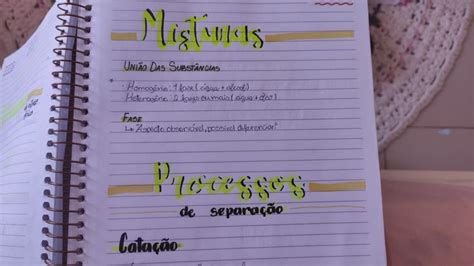 Misturas
União Das Substâncias
Homogênio: 1 fase (água + álcool)
Heterogênio: 2 fases ou mais (água + óleo)
Fase
↳ Aspecto observável, possível diferenciar
Processos
de separação
Catação